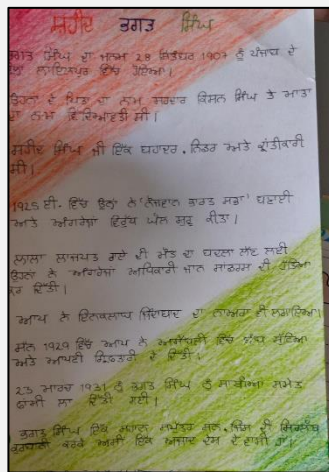 ਸ਼ਹੀਦ ਭਗਤ ਸਿੰਘ
ਭਗਤ ਸਿੰਘ ਦਾ ਜਨਮ 28 ਸਤੰਬਰ 1907 ਨੂੰ ਪੰਜਾਬ ਦੇ
ਲਾਇਲਪੁਰ ਵਿੱਚ ਹੋਇਆ।
ਉਹਨਾਂ ਦੇ ਪਿਤਾ ਦਾ ਨਾਮ ਸਰਦਾਰ ਕਿਸ਼ਨ ਸਿੰਘ ਤੇ ਮਾਤਾ
ਦਾ ਨਾਮ ਵਿਦਿਆਵਤੀ ਸੀ।
ਸ਼ਹੀਦ ਸਿੰਘ ਜੀ ਇੱਕ ਬਹਾਦਰ, ਨਿਡਰ ਅਤੇ ਕ੍ਰਾਂਤੀਕਾਰੀ
ਸੀ।
1925 ਈ. ਵਿੱਚ ਉਨ੍ਹਾਂ ਨੇ 'ਨੌਜਵਾਨ ਭਾਰਤ ਸਭਾ' ਬਣਾਈ
ਅਤੇ ਅੰਗਰੇਜ਼ਾਂ ਵਿਰੁੱਧ ਘੋਲ ਸ਼ੁਰੂ ਕੀਤਾ।
ਲਾਲਾ ਲਾਜਪਤ ਰਾਏ ਦੀ ਮੌਤ ਦਾ ਬਦਲਾ ਲੈਣ ਲਈ
ਉਹਨਾਂ ਨੇ ਅੰਗਰੇਜ਼ ਅਧਿਕਾਰੀ ਜਾਨ ਸਾਂਡਰਸ ਦੀ ਹੱਤਿਆ
ਕਰ ਦਿੱਤੀ।
ਆਪ ਨੇ ਇਨਕਲਾਬ ਜ਼ਿੰਦਾਬਾਦ ਦਾ ਨਾਅਰਾ ਵੀ ਲਗਾਇਆ।
ਸੰਨ 1929 ਵਿੱਚ ਆਪ ਨੇ ਅਸੈਂਬਲੀ ਵਿੱਚ ਬੰਬ ਸੁੱਟਿਆ
ਅਤੇ ਆਪਣੀ ਗ੍ਰਿਫ਼ਤਾਰੀ ਦੇ ਦਿੱਤੀ।
23 ਮਾਰਚ 1931 ਨੂੰ ਭਗਤ ਸਿੰਘ ਨੂੰ ਸਾਥੀਆਂ ਸਮੇਤ
ਫਾਂਸੀ ਲਾ ਦਿੱਤੀ ਗਈ।
ਭਗਤ ਸਿੰਘ ਇੱਕ ਮਹਾਨ ਸਪੂਤਰ ਸਨ, ਜਿਸ ਦੀ
ਕੁਰਬਾਨੀ ਕਰਕੇ ਅਸੀਂ ਇੱਕ ਅਜ਼ਾਦ ਦੇਸ਼ ਦੇ ਵਾਸੀ ਹਾਂ।